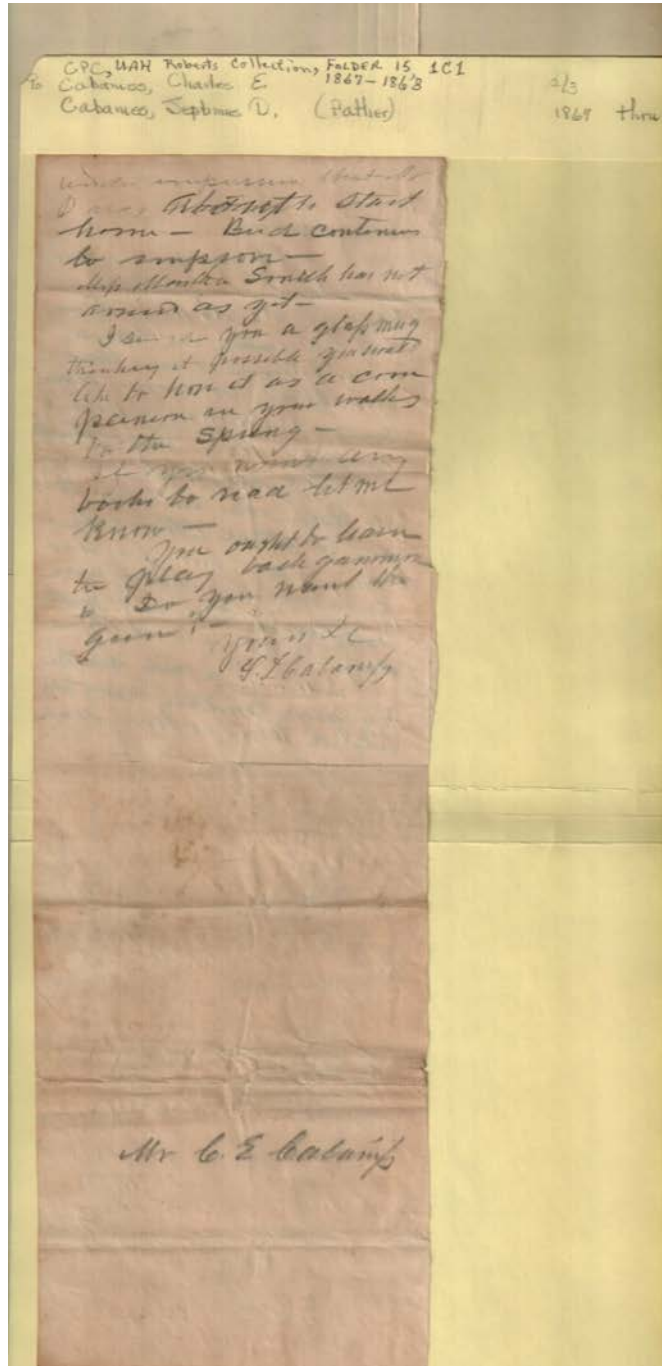 CPC, UAH Roberts Collection, FOLDER 15 1C1
To Cabaniss, Charles E. 1867-1868
Cabaniss, Septimus D. (Father)
1868 thru
under impression that
I was about to start
home — Bud continues
to improve —
Miss Smith has not
arrived as yet —
I send you a glass mug
thinking it possible you
like to have it as a com
panion in your walks
to the Spring —
If you want any
books to read let me
know —
You ought to learn
to play back gammon
Do you want the
yours &c
S. D. Cabaniss
Mr C. E. Cabaniss